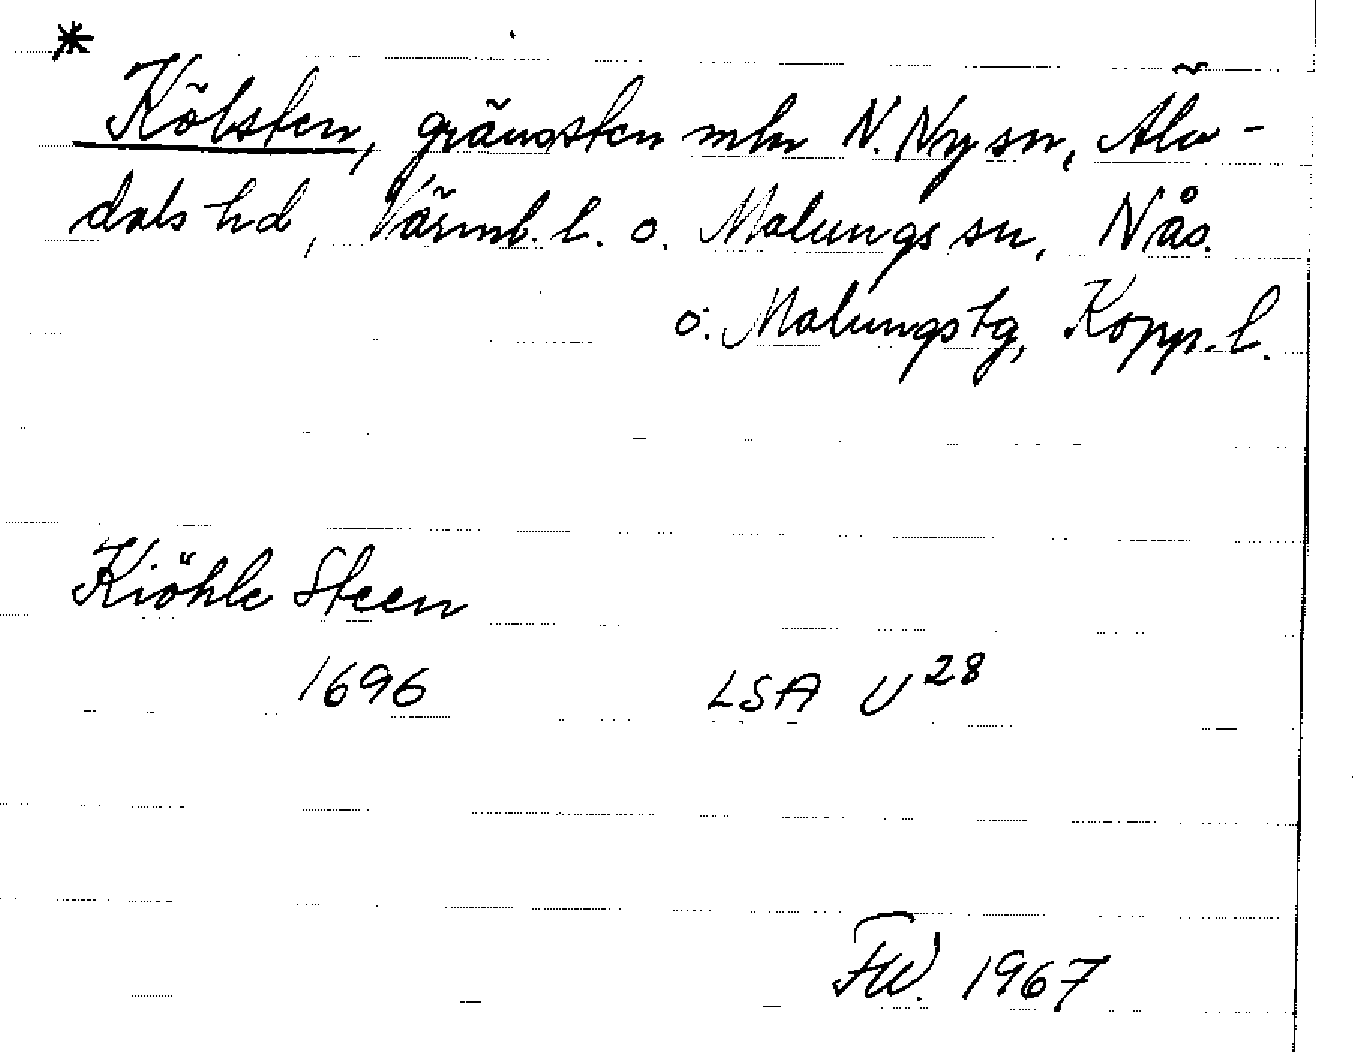 *
Kölsten, gränssten mln N. Ny sn, Älv-
dals hd, Värml. l. o. Malungs sn, Nås.
o. Malungs tg, Kopp. l.
Kiöhle Steen
1696 LSA U 28
FW. 1967